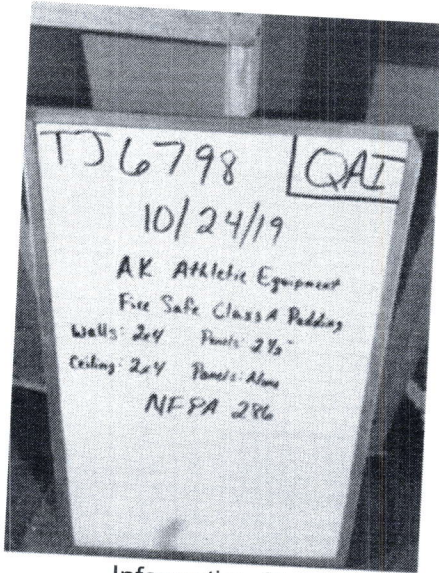 TJ6798 QAI
10/24/19
AK Athletic Equipment
Fire Safe Class A Padding
Walls: 2x4 Panels: 2½"
Ceiling: 2x4 Panels:
NFPA 286